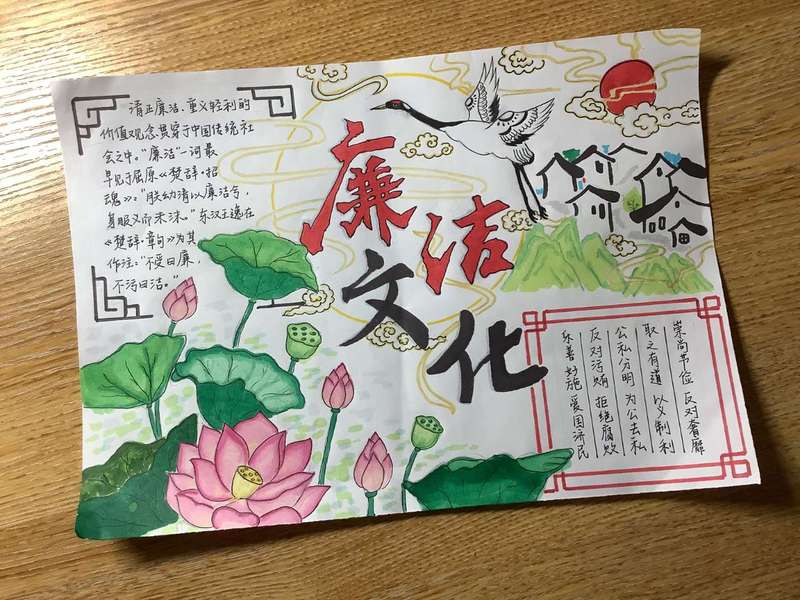 清正廉洁、重义轻利的
价值观念贯穿于中国传统社
会之中。“廉洁”一词最
早见于屈原《楚辞·招
魂》：“朕幼清以廉洁兮，
身服义而未沫。”东汉王逸在
《楚辞·章句》为其
作注：“不受曰廉，
不污曰洁。”
廉洁
文化
崇尚节俭 反对奢靡
取之有道 以义制利
公私分明 为公去私
反对污贿 拒绝腐败
乐善好施 爱国济民